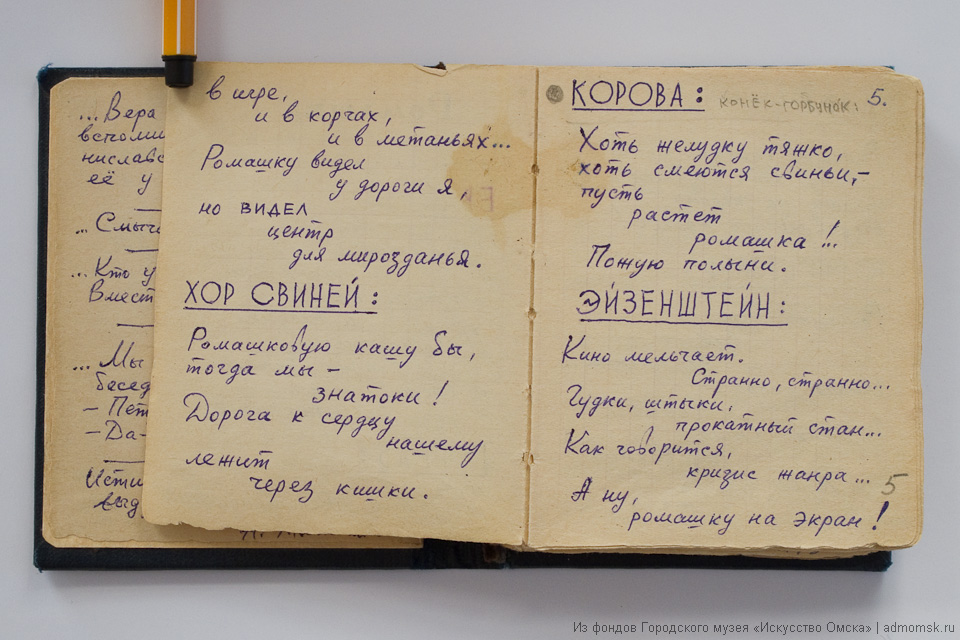 ...Вера
...Смыч
...Кто у
Вмест
...Мы
бесед
- Пет
- Да-
в игре,
и в корчах,
и в метаньях...
Ромашку видел
у дороги я,
но видел
центр
для мирозданья.
ХОР СВИНЕЙ:
Ромашковую кашу бы,
тогда мы -
знатоки!
Дорога к сердцу
нашему
лежит
через кишки.
КОРОВА: КОНЁК-ГОРБУНОК: 5.
Хоть желудку тяжко,
хоть смеются свиньи,-
пусть
растет
ромашка!..
Пожую полыни.
ЭЙЗЕНШТЕЙН:
Кино мельчает.
Странно, странно...
Гудки, штыки,
прокатный стан...
Как говорится,
кризис жанра...
5
А ну,
ромашку на экран!
Из фондов Городского музея «Искусство Омска» | admomsk.ru